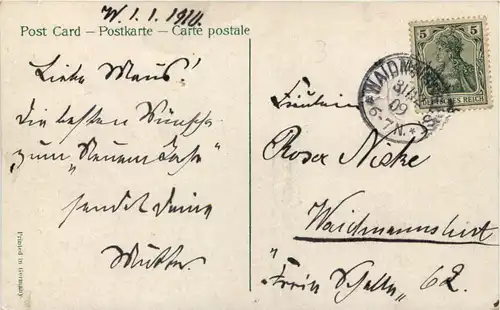 W. 1.1.1910.
Post Card – Postkarte – Carte postale
Liebe Maus!
Die besten Wünsche
zum "Neuen Jahre"
sendet Deine
Mutter.
Printed in Germany
5 5
DEUTSCHES REICH
WAIDMANNSLUST
31.12.
09
6-7N.
Fräulein
Rosa Niske
Waidmannslust
"Freie Scholle" 62.